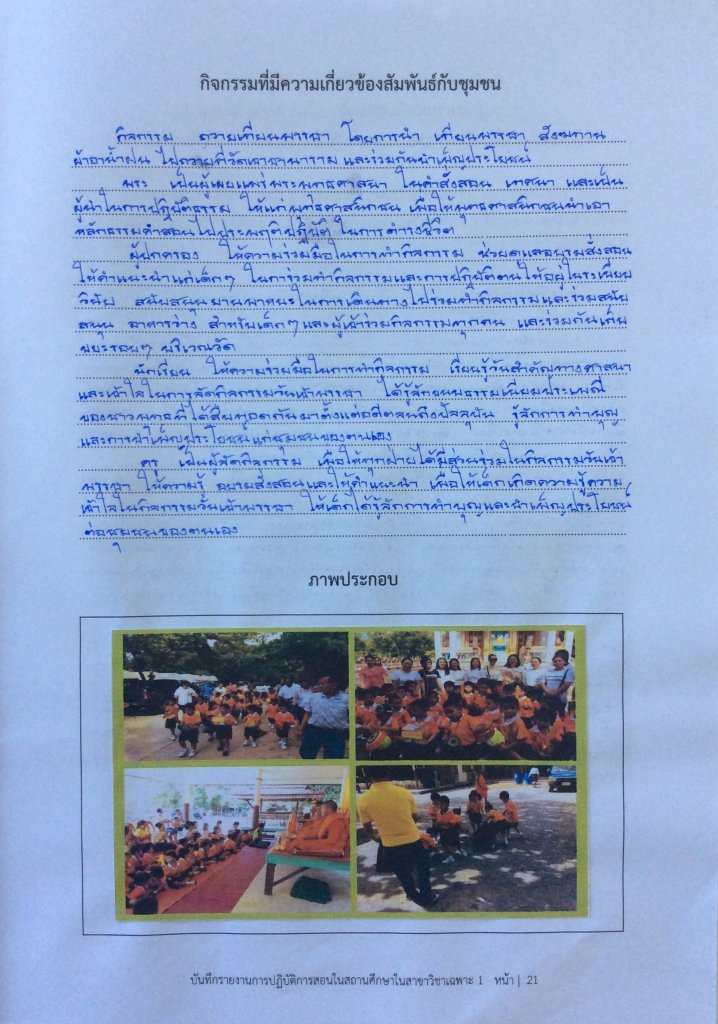 กิจกรรมที่มีความเกี่ยวข้องสัมพันธ์กับชุมชน
กิจกรรม ถวายเทียนพรรษา โดยการนำ เทียนพรรษา สังฆทาน
ผ้าอาบน้ำฝน ไปถวายที่วัดเขาชานาราม และร่วมกันบำเพ็ญประโยชน์
พระ เป็นผู้เผยแพร่พระพุทธศาสนา ในคำสั่งสอน เทศนา และเป็น
ผู้นำในการปฏิบัติธรรม ให้แก่พุทธศาสนิกชน เพื่อให้พุทธศาสนิกชนนำเอา
หลักธรรมคำสอนไปประพฤติปฏิบัติ ในการดำรงชีวิต
ผู้ปกครอง ให้ความร่วมมือในการทำกิจกรรม ช่วยดูแลอบรมสั่งสอน
ให้คำแนะนำแก่เด็กๆ ในการร่วมทำกิจกรรมและการปฏิบัติตนให้อยู่ในระเบียบ
วินัย สนับสนุนยานพาหนะในการเดินทางไปร่วมทำกิจกรรมและร่วมสนับ
สนุน อาหารว่าง สำหรับเด็กๆและผู้เข้าร่วมกิจกรรมทุกคน และร่วมกันเก็บ
ขยะรอบๆ บริเวณวัด
นักเรียน ให้ความร่วมมือในการทำกิจกรรม เรียนรู้วันสำคัญทางศาสนา
และเข้าใจในการจัดกิจกรรมวันเข้าพรรษา ได้รู้จักขนบธรรมเนียมประเพณี
ของชาวพุทธที่ได้สืบทอดกันมาตั้งแต่อดีตจนถึงปัจจุบัน รู้จักการทำบุญ
และการบำเพ็ญประโยชน์แก่ชุมชนของตนเอง
ครู เป็นผู้จัดกิจกรรม เพื่อให้ทุกฝ่ายได้มีส่วนร่วมในกิจกรรมวันเข้า
พรรษา ให้ความรู้ อบรมสั่งสอนและให้คำแนะนำ เพื่อให้เด็กเกิดความรู้ความ
เข้าใจในกิจกรรมวันเข้าพรรษา ให้เด็กได้รู้จักการทำบุญและบำเพ็ญประโยชน์
ต่อชุมชนของตนเอง
ภาพประกอบ
บันทึกรายงานการปฏิบัติการสอนในสถานศึกษาในสาขาวิชาเฉพาะ 1 หน้า | 21